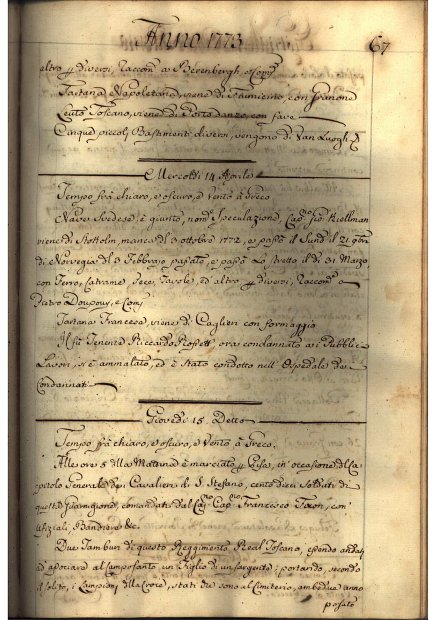 Anno 1773
67
altro p diversi, Raccom.ti a Berenbergh, e Comp.
Tartana Napoletana, viene di Fiumicino, con Granone
Leuto Toscano, viene di Porto danzo, con fave
Cinque piccoli Bastimenti diversi, vengono di Van Luoghi
Mercoldi 14 Aprile
Tempo frà chiaro, e oscuro, e vento à Greco
Nave Svedese, è giunto, nom.a Speculazione, Cap.o Gio: Kiellman
viene di Stoccolm, manca dl 3 ottobre 1772, e passò il Sund il 21 9bre
di Norvegia dl 3 Febbrajo passato, e passò Lo stretto il dì 31 Marzo,
con Ferro, Catrame, Pece, Tavole, ed altro p diversi, Raccom.ti a
Pietro Doupouy, e Comp.
Tartana Francese, viene di Caglieri con formaggio
Il fù Tenente Riccardo Rossett, ora condannato ai Pubblici
Lavori, si è ammalato, ed è stato condotto nell'Ospedale dei
Condannati
Giovedi 15 Detto
Tempo frà chiaro, e oscuro, e Vento à Greco
Alle ore 5 dlla Matina è marciato p Pisa, in occasione dl Ca-
pitolo Generale de Cavalieri di S. Stefano, cento dieci Soldati di
questa Guarnigione, comandati dal Cap.no Francesco Tocon, con
Uffiziali, Bandiere &c.
Due Tamburi di questo Reggimento Real Toscano, essendo andati
ad associare al Camposanto un Figlio di un Sargente; portando, secondo
il solito, i Lampioni dlla Croce, stati che sono al Cimiterio, ambedue anno
posato